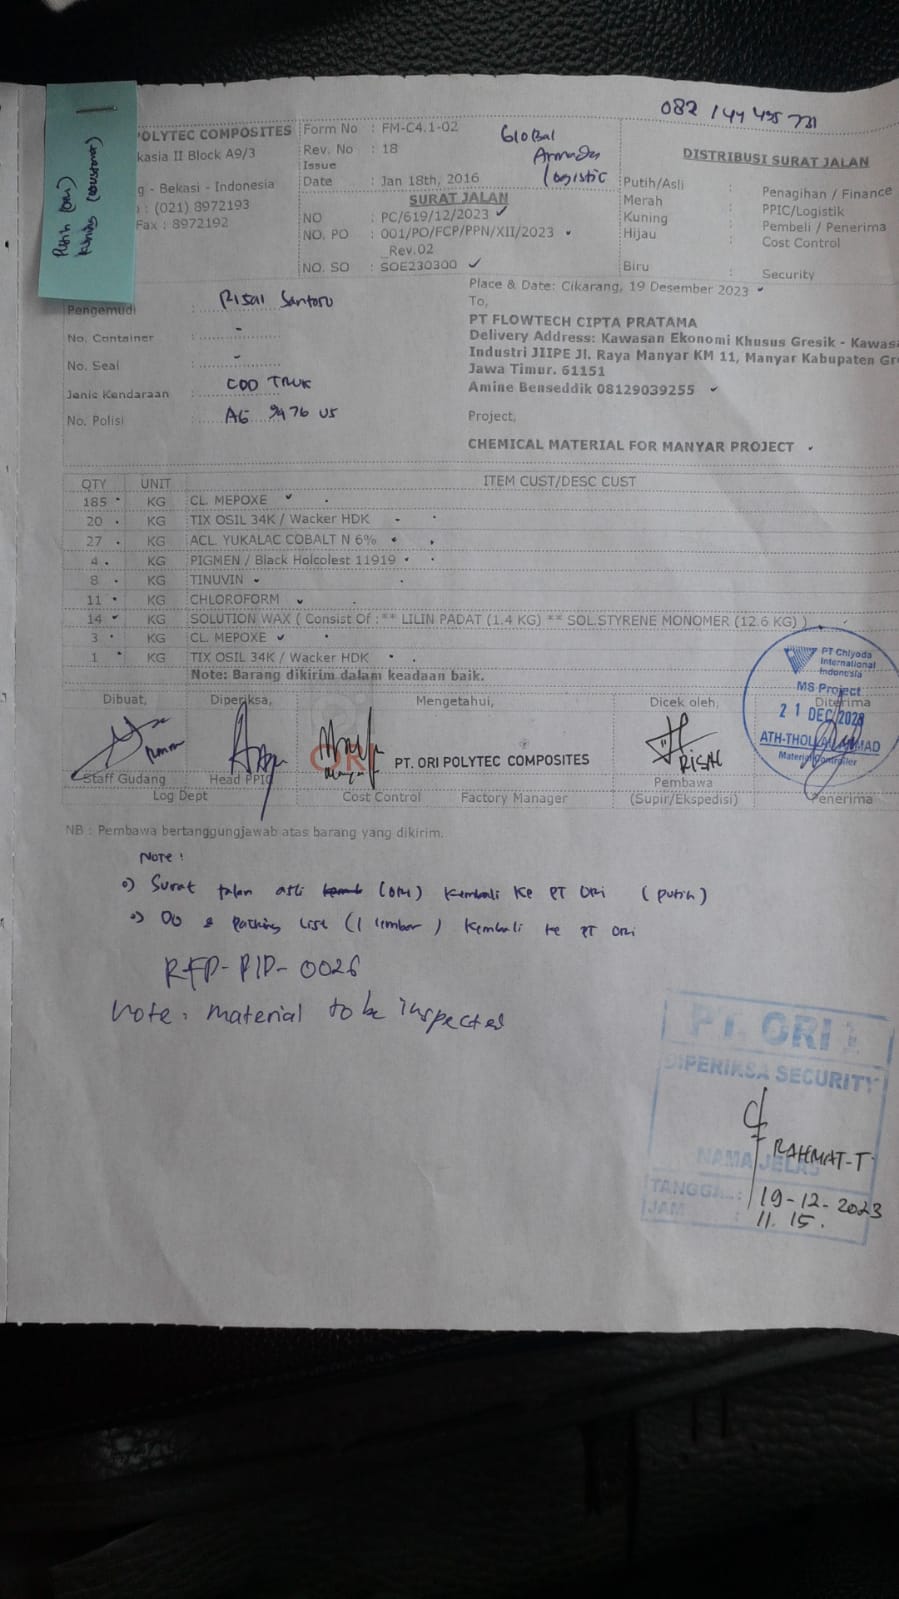 082 144 495 731
Putih (ORI)
Kuning (Customer)
POLYTEC COMPOSITES
kasia II Block A9/3
g - Bekasi - Indonesia
: (021) 8972193
Fax : 8972192
Form No : FM-C4.1-02
Rev. No : 18
Issue
Date : Jan 18th, 2016
Global
Armada
Logistic
SURAT JALAN
NO : PC/619/12/2023
NO. PO : 001/PO/FCP/PPN/XII/2023
_Rev.02
NO. SO : SOE230300
DISTRIBUSI SURAT JALAN
Putih/Asli : Penagihan / Finance
Merah : PPIC/Logistik
Kuning : Pembeli / Penerima
Hijau : Cost Control
Biru : Security
Pengemudi : Risal Santoro
No. Container : -
No. Seal : -
Jenis Kendaraan : CDD TRUK
No. Polisi : AG 9476 US
Place & Date: Cikarang, 19 Desember 2023
To,
PT FLOWTECH CIPTA PRATAMA
Delivery Address: Kawasan Ekonomi Khusus Gresik - Kawas
Industri JIIPE Jl. Raya Manyar KM 11, Manyar Kabupaten Gr
Jawa Timur. 61151
Amine Benseddik 08129039255
Project,
CHEMICAL MATERIAL FOR MANYAR PROJECT
QTY UNIT ITEM CUST/DESC CUST
185 KG CL. MEPOXE
20 KG TIX OSIL 34K / Wacker HDK
27 KG ACL. YUKALAC COBALT N 6%
4 KG PIGMEN / Black Holcolest 11919
8 KG TINUVIN
11 KG CHLOROFORM
14 KG SOLUTION WAX ( Consist Of :** LILIN PADAT (1.4 KG) ** SOL.STYRENE MONOMER (12.6 KG) )
3 KG CL. MEPOXE
1 KG TIX OSIL 34K / Wacker HDK
Note: Barang dikirim dalam keadaan baik.
Dibuat, Diperiksa, Mengetahui, Dicek oleh, Diterima
PT Chiyoda
International
Indonesia
MS Project
21 DEC 2023
Material Controller
ORI
PT. ORI POLYTEC COMPOSITES
RISAL
Staff Gudang Head PPIC Pembawa
Log Dept Cost Control Factory Manager (Supir/Ekspedisi) Penerima
NB : Pembawa bertanggungjawab atas barang yang dikirim.
Note :
Surat Jalan asli (ORI) Kembali Ke PT ORI (putih)
DO & Packing List (1 lembar) Kembali ke PT ORI
RFP-PIP-0026
Note : material to be inspected
PT. ORI 1
DIPERIKSA SECURITY
RAHMAT-T.
NAMA JELAS
TANGGAL : 19-12-2023
JAM : 11.15.